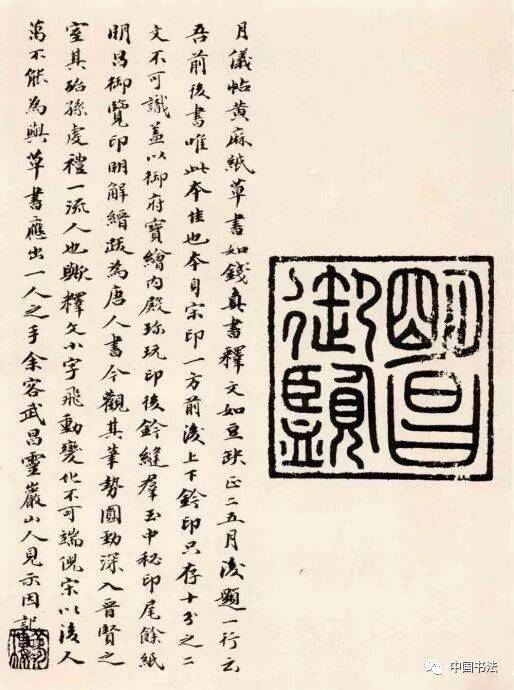 明昌
御覽
月儀帖黃麻紙草書如錢真書釋文如豆缺正二五月後題一行云
吾前後書唯此本佳也本自宋印一方前後上下鈐印只存十分之二
文不可識蓋以御府寶繪內殿珍玩印後鈐縫羣玉中秘印尾餘紙
明昌御覽印明解縉跋為唐人書今觀其筆勢圓勁深入晉賢之
室其殆孫虔禮一流人也歟釋文小字飛動變化不可端倪宋以後人
萬不能為與草書應出一人之手余客武昌靈巖山人見示因記
中国书法